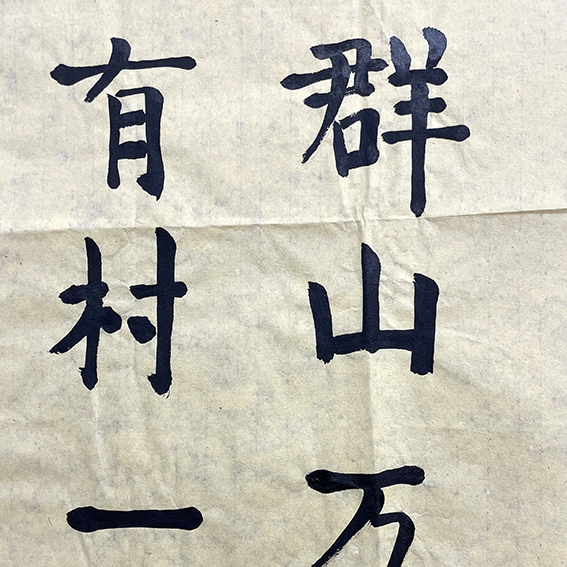 群山万
有村一